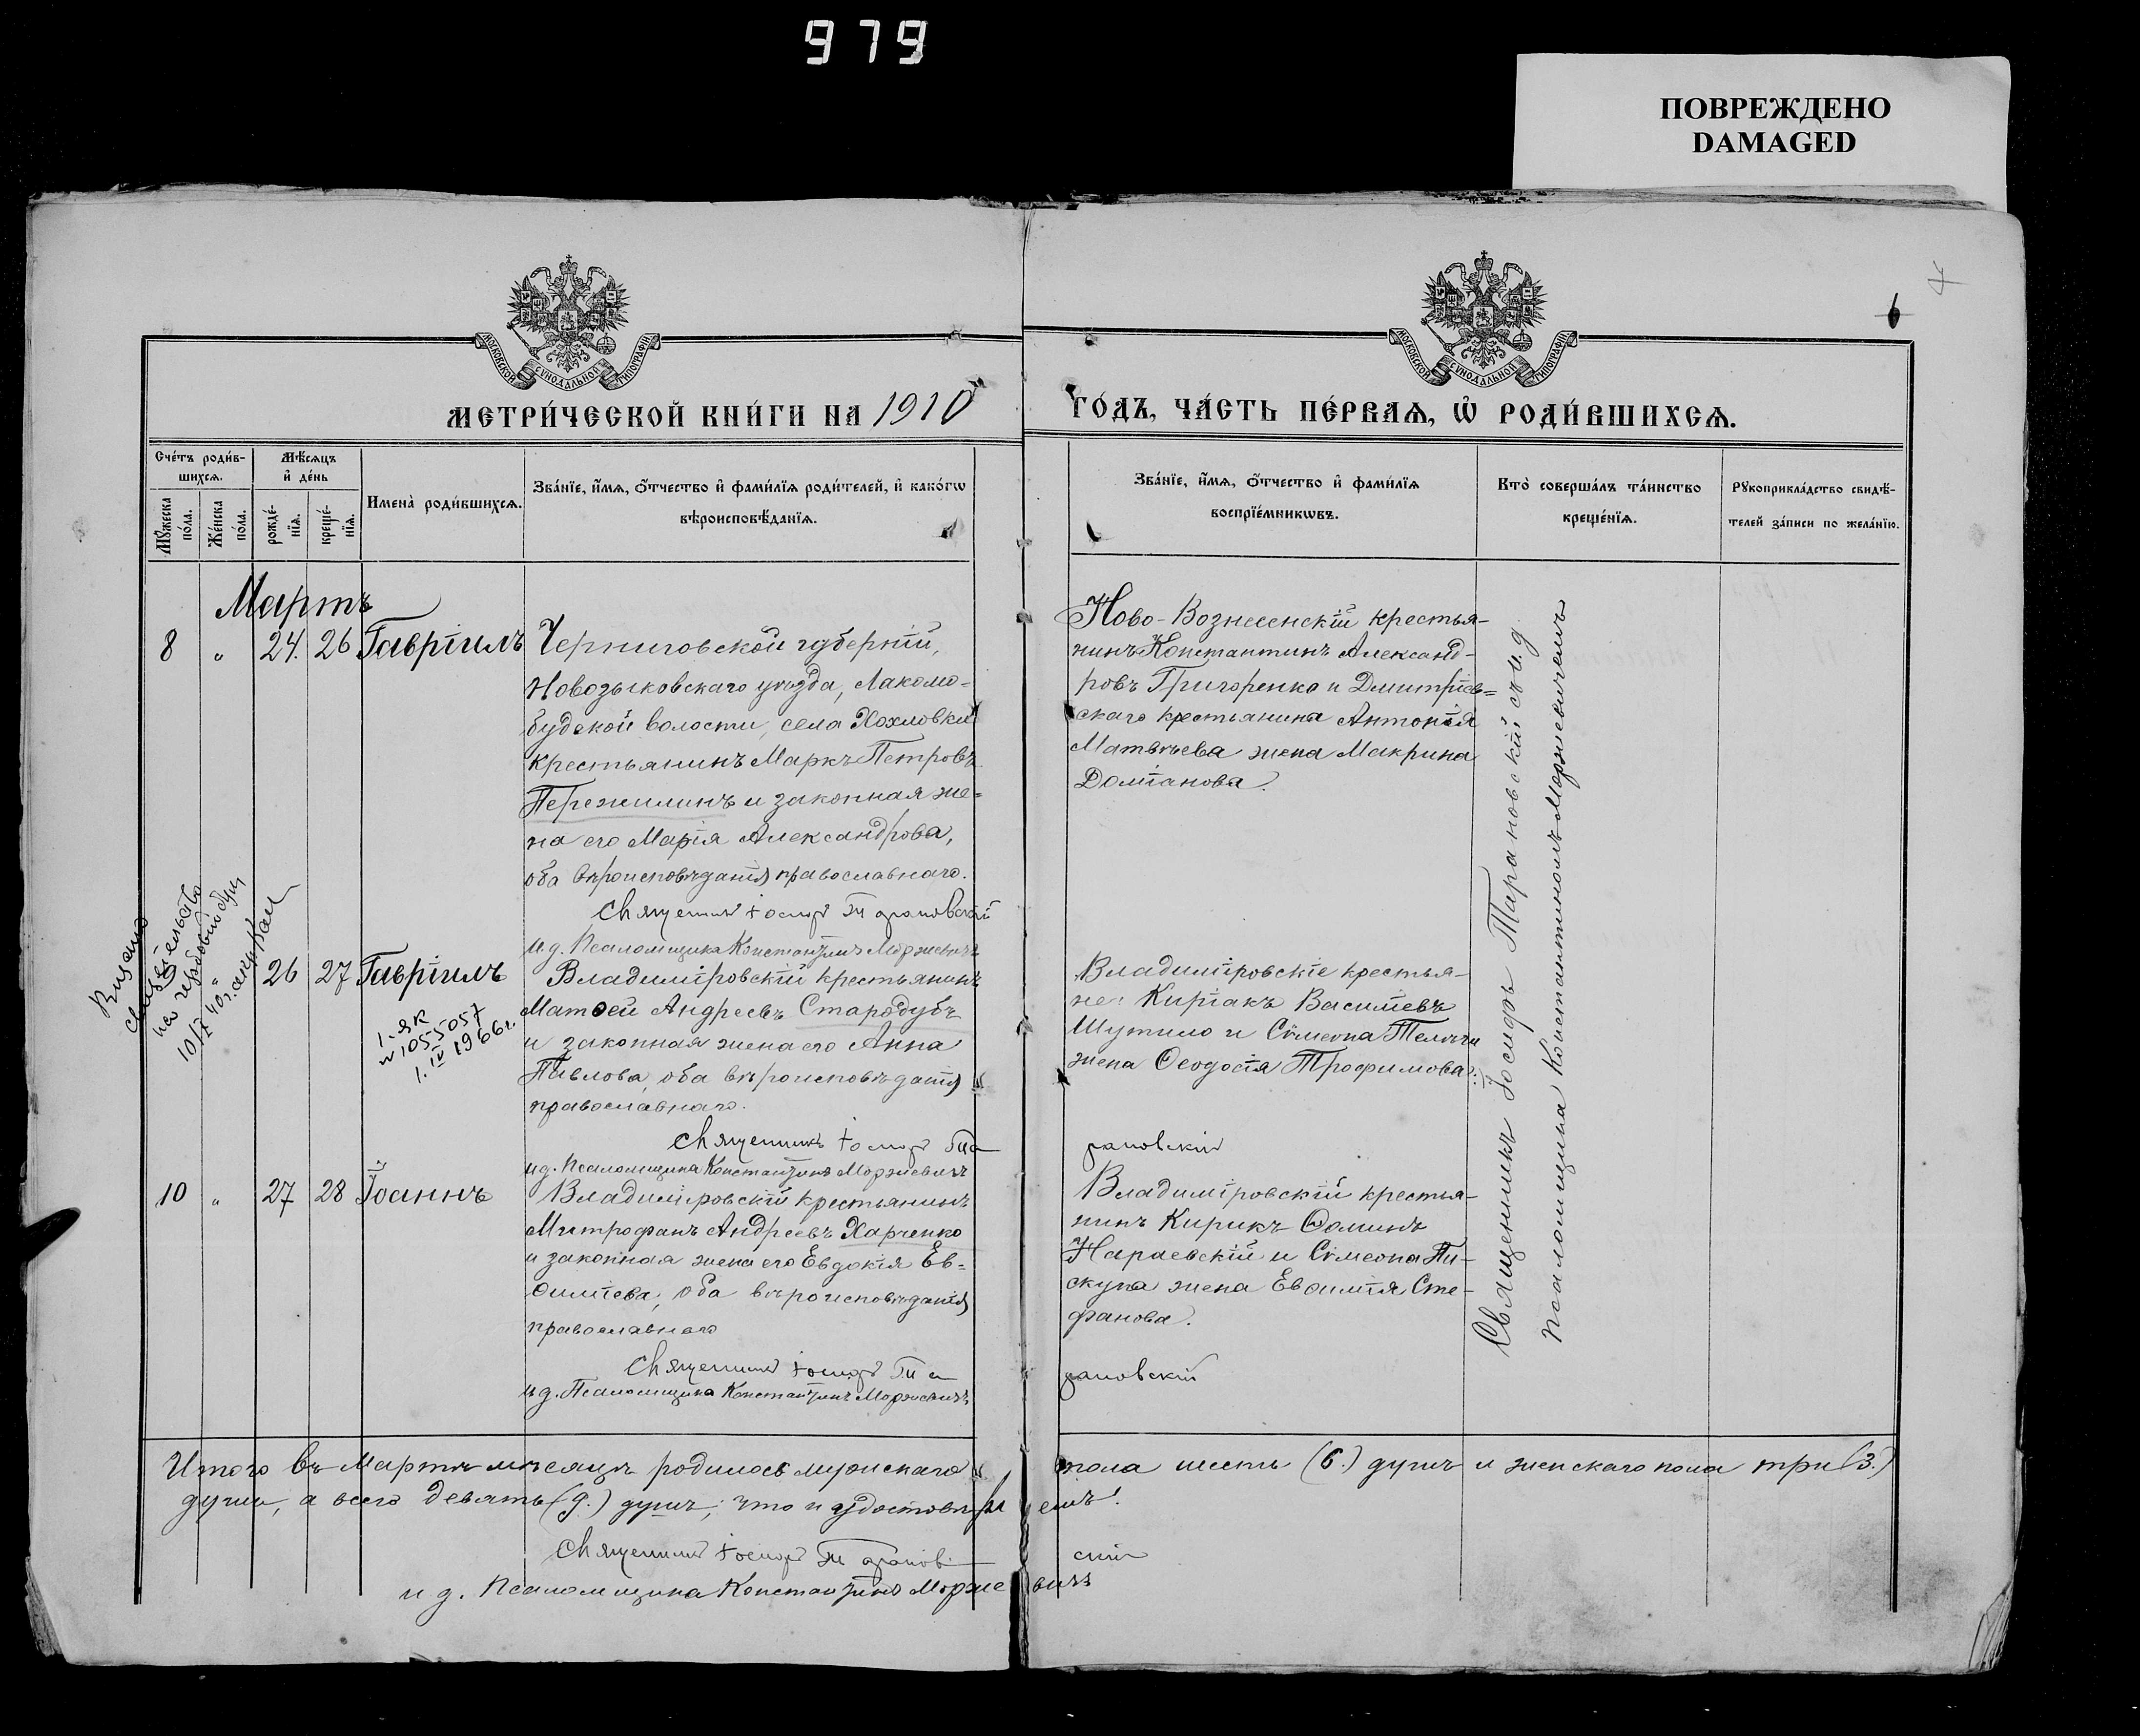 979
ПОВРЕЖДЕНО
DAMAGED
6
МОСКОВСКОЙ СѴНОДАЛЬНОЙ ТИПОГРАФІИ
МОСКОВСКОЙ СѴНОДАЛЬНОЙ ТИПОГРАФІИ
МЕТРИ́ЧЕСКОЙ КНИ́ГИ НА 1910
ГО́ДЪ, ЧА́СТЬ ПЕ́РВАѦ, Ѽ РОДИ́ВШИХСѦ.
Сче́тъ роди́в-
шихсѧ.
Мꙋ́жеска по́ла.
Же́нска по́ла.
Мѣ́сѧцъ
и҆ де́нь
рожде́-
нїѧ.
креще́-
нїѧ.
Имена̀ роди́вшихсѧ.
Зва́нїе, и҆́мѧ, ѻ҆́тчество и҆ фами́лїѧ роди́телей, и҆ како́гѡ
вѣроисповѣ́данїѧ.
Зва́нїе, и҆́мѧ, ѻ҆́тчество и҆ фами́лїѧ
воспрїе́мникѡвъ.
Кто̀ соверша́лъ та́инство
креще́нїѧ.
Рꙋкоприкла́дство свидѣ́-
телей за́писи по жела́нїю.
Мартъ
8 " 24. 26 Гавріилъ
Черниговской губерніи,
Новозыбковскаго уѣзда, Лакомо-
будской волости, села Хохловки
крестьянинъ Маркъ Петровъ
Пережилинъ и законная же-
на его Марія Александрова,
оба вѣроисповѣданія православнаго.
Священникъ Іосифъ Тарановскій
И. д. Псаломщика Константинъ Моржевичъ
Ново-Вознесенскій крестья-
нинъ Константинъ Александ-
ровъ Григоренко и Дмитріев-
скаго крестьянина Антонія
Матвѣева жена Макрина
Доміанова.
Выдано
свидѣтельство
на гербовый
10/X 40 г.
26 27 Гавріилъ
1.ЯК
№ 1055057
1.IV 1966 г.
Владимировскій крестьянинъ
Матѳей Андреевъ Стародубъ
и законная жена его Анна
Павлова, оба вѣроисповѣданія
православнаго.
Священникъ Іосифъ Та
рановскій
и д. Псаломщика Константинъ Моржевичъ
Владиміровскіе крестья-
не: Киріакъ Василіевъ
Шутило и Сѵмеона
жена Ѳеодосія Трофимова.
10 " 27 28 Іоаннъ
Владиміровскій крестьянинъ
Митрофанъ Андреевъ Харченко
и законная жена его Евдокія Ев-
ѳиміева, оба вѣроисповѣданія
православнаго
Священникъ Іосифъ Та
рановскій
и д. Псаломщика Константинъ Моржевичъ
Владиміровскій крестья-
нинъ Кирикъ Ѳоминъ
Нараевскій и Сѵмеона Пи-
скуна жена Евѳимія Сте-
фанова.
Священникъ Іосифъ Тарановскій съ и. д.
псаломщика Константиномъ Моржевичемъ
Итого въ Мартѣ мѣсяцѣ родилось мужскаго пола шесть (6.) душъ и женскаго пола три (3.)
души, а всего девять (9.) душъ; что и удостовѣряемъ:
Священникъ Іосифъ Тарановскій
и д. Псаломщика Константинъ Моржевичъ